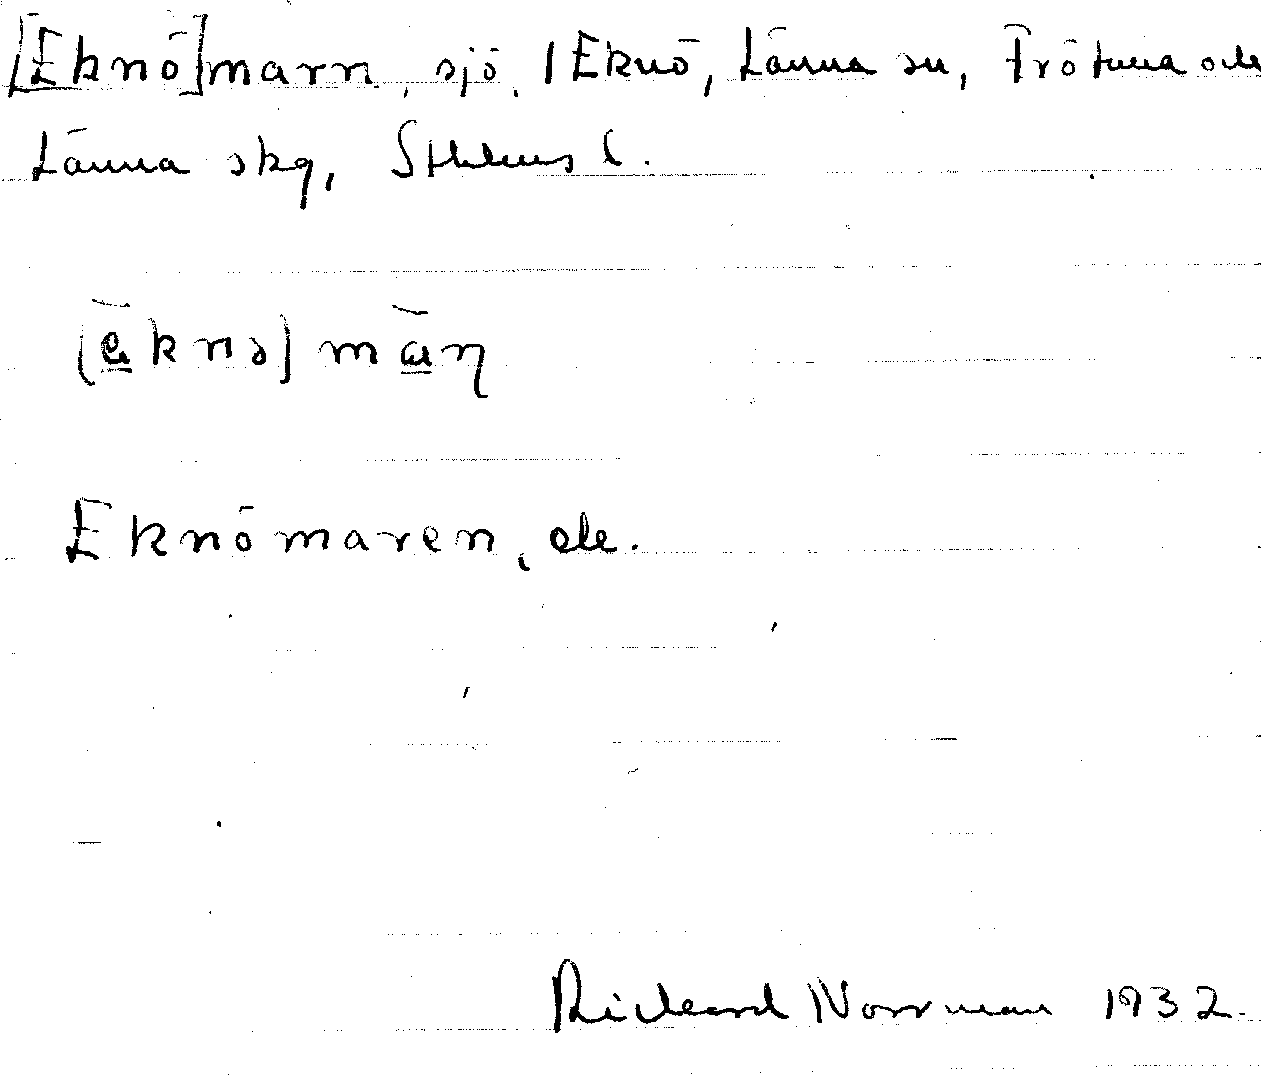 [Eknö]marn, sjö, i Eknö, Länna sn, Frötuna och
Länna skg, Sthlms l.
(e̲̅knə) ma̲̅ɳ
Eknömaren, ele.
Rickard Norrman 1932.